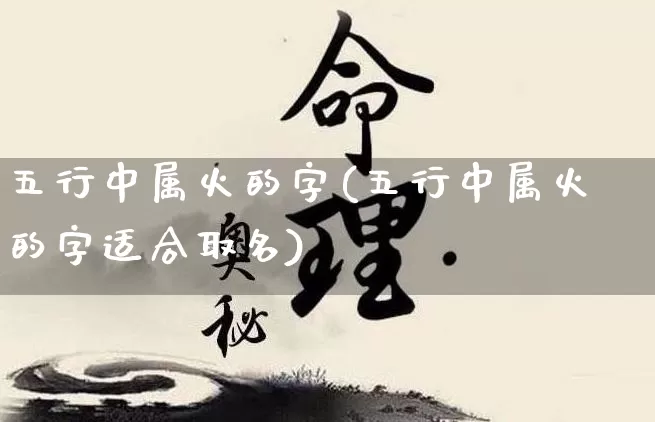 命理
五行中属火的字(五行中属火
的字适合取名)
奥秘